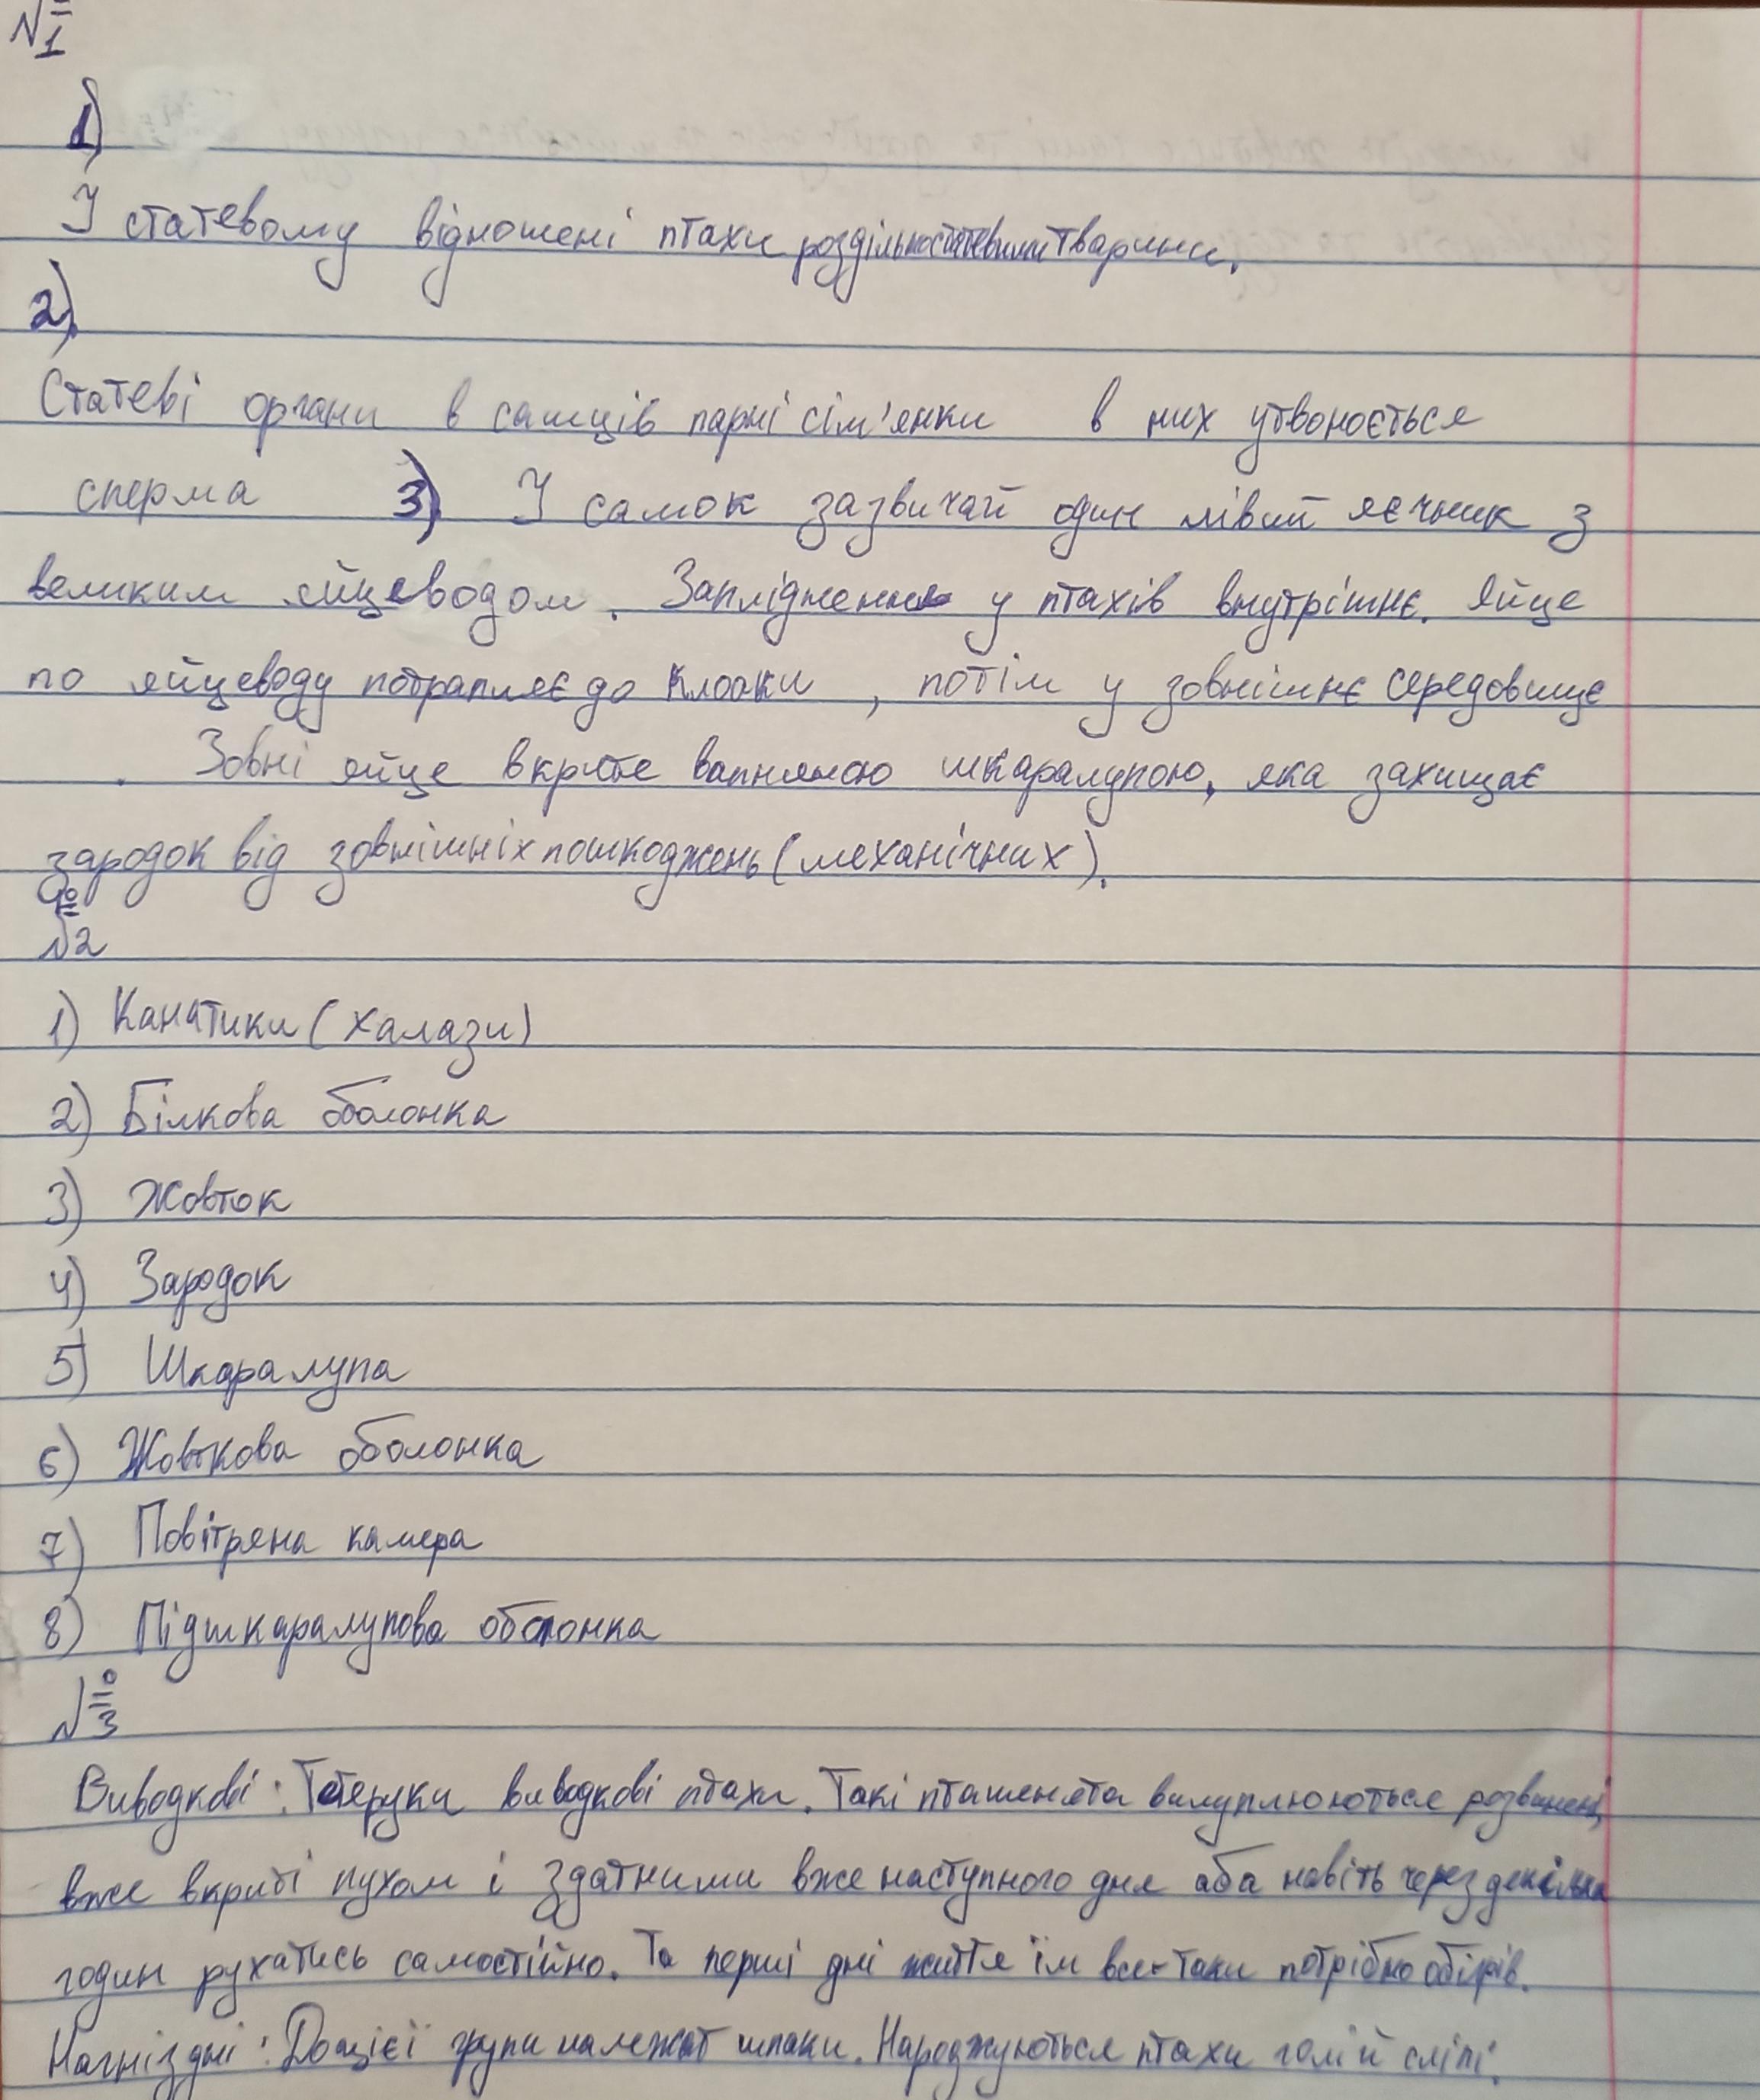 №1
1)
У статевому відношені птахи роздільностатевими тварини.
2)
Статеві органи в самців парні сім'яники в них утвонюється
сперма 3) У самок зазвичай один лівий яєчник з
великим яйцеводом. Запліднення у птахів внутрішнє. Яйце
по яйцеводу потрапляє до клоаки, потім у зовнішнє середовище
. Зовні яйце вкрите вапняною шкаралупою, яка захищає
зародок від зовнішніх пошкоджень (механічних).
№2
1) Канатики (халази)
2) Білкова оболонка
3) Жовток
4) Зародок
5) Шкаралупа
6) Жовткова оболонка
7) Повітряна камера
8) Підшкаралупова оболонка
№3
Виводкові: Тетеруки виводкові птахи. Такі пташенята вилуплюються розвинені
вже вкриті пухом і здатними вже наступного дня або навіть через декілька
годин рухатись самостійно. Та перші дні життя їм все-таки потрібно обігрів.
Нагніздні: До цієї групи належат шпаки. Народжуються птахи голі й сліпі.